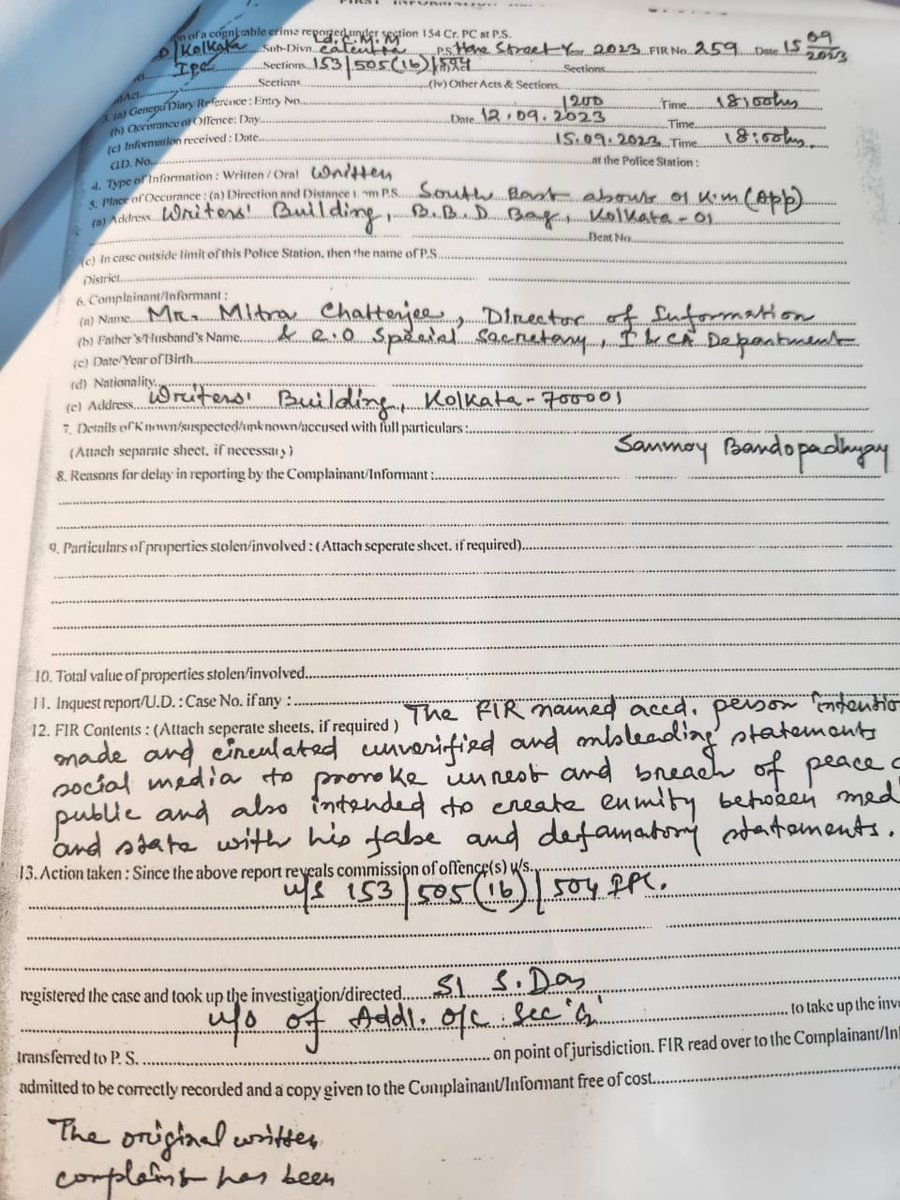 FIRST INFORMATION
on of a cognizable crime reported under section 154 Cr. PC at P.S.
Kolkata Sub-Divn. Ld. C.M.M Calcutta P.S. Hare Street Year 2023 FIR No. 259 Date 15 09 2023
Act IPC Sections 153/505(1b)/504 Sections
Act Sections (iv) Other Acts & Sections
3. (a) General Diary Reference : Entry No. 1200 Time 18:00hrs
(b) Occurance of Offence: Day Date 12.09.2023 Time
(c) Information received : Date 15.09.2023 Time 18:00hrs.
G.D. No. at the Police Station :
4. Type of Information : Written / Oral Written
5. Place of Occurance : (a) Direction and Distance from P.S. South East about 01 K.m (App)
(a) Address Writers' Building, B.B.D Bag, Kolkata - 01
Beat No.
(c) In case outside limit of this Police Station, then the name of P.S
District
6. Complainant/Informant :
(a) Name Mr. Mitra Chatterjee, Director of Information
(b) Father's/Husband's Name & e.o Special Secretary, I & CA Department
(c) Date/Year of Birth
(d) Nationality
(e) Address Writers' Building, Kolkata - 700001
7. Details of Known/suspected/unknown/accused with full particulars :
(Attach separate sheet, if necessary) Sanmoy Bandopadhyay
8. Reasons for delay in reporting by the Complainant/Informant :
9. Particulars of properties stolen/involved : (Attach seperate sheet. if required)
10. Total value of properties stolen/involved
11. Inquest report/U.D. : Case No. if any :
12. FIR Contents : (Attach seperate sheets, if required ) The FIR named accd. person intentio
made and circulated unverified and misleading statements
social media to provoke unrest and breach of peace
public and also intended to create enmity between med
and state with his false and defamatory statements.
13. Action taken : Since the above report reveals commission of offence(s) u/s.
u/s 153/505(1b)/504 IPC.
registered the case and took up the investigation/directed SI S. Das
u/o of Addl. o/c Sec 'G' to take up the inve
transferred to P. S. on point of jurisdiction. FIR read over to the Complainant/In
admitted to be correctly recorded and a copy given to the Complainant/Informant free of cost
The original written
complaint has been